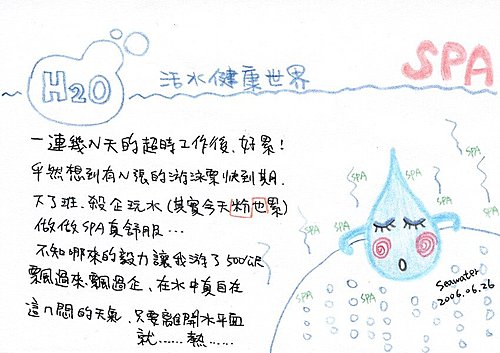 H2O
活水健康世界
SPA
一連幾N天的超時工作後、好累!
乎然想到有N張的游泳票快到期.
大了班.殺企玩水(其實今天粉也累)
做做SPA真舒服...
不知哪來的毅力讓我游了500公尺
飄過來.飄過企、在水中真自在
這ㄇ悶的天氣.只要離開水平面
就......熱......
SPA
SPA
SPA
SPA
SPA
SPA
SPA
SPA
Seawater
2006.06.26